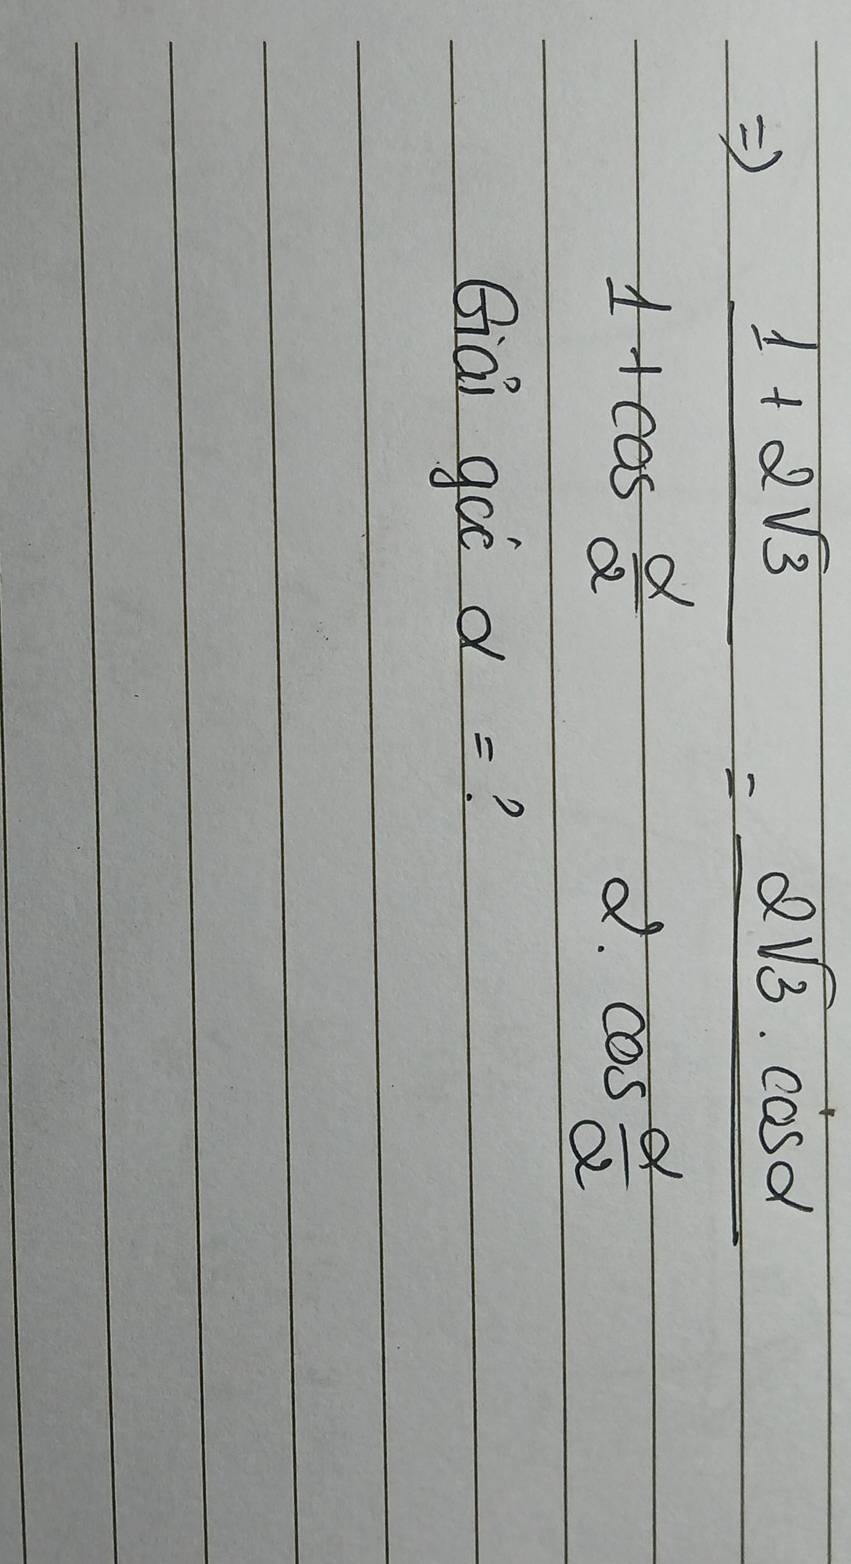 => (1 + 2√3) / (1 + cos α/2) = (2√3 . cos α) / (2 . cos α/2)
Giải góc α = ?